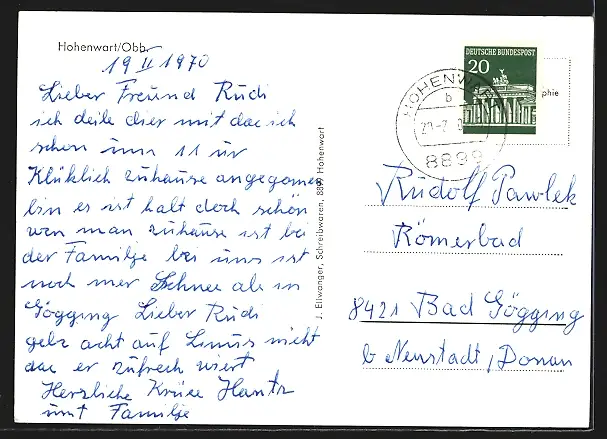 Hohenwart/Obb.
19 II 1970
Lieber Freund Rudi
ich deile dier mit das ich
schon umm 11 ur
Klüklich zuhause angegomen
bin es ist halt doch schön
wen man zuhause ist bei
der Familje bei uns ist
noch mer Schnee als in
Gögging Lieber Rudi
gebe acht auf Linus nicht
das er zufrech wiert
Herzliche Krüse Hantz
umt Familje
J. Ellwanger, Schreibwaren, 8899 Hohenwart
DEUTSCHE BUNDESPOST
20
HOHENWART
b
8899
phie
Rudolf Pawlek
Römerbad
8421 Bad Gögging
b Neustadt, Donau